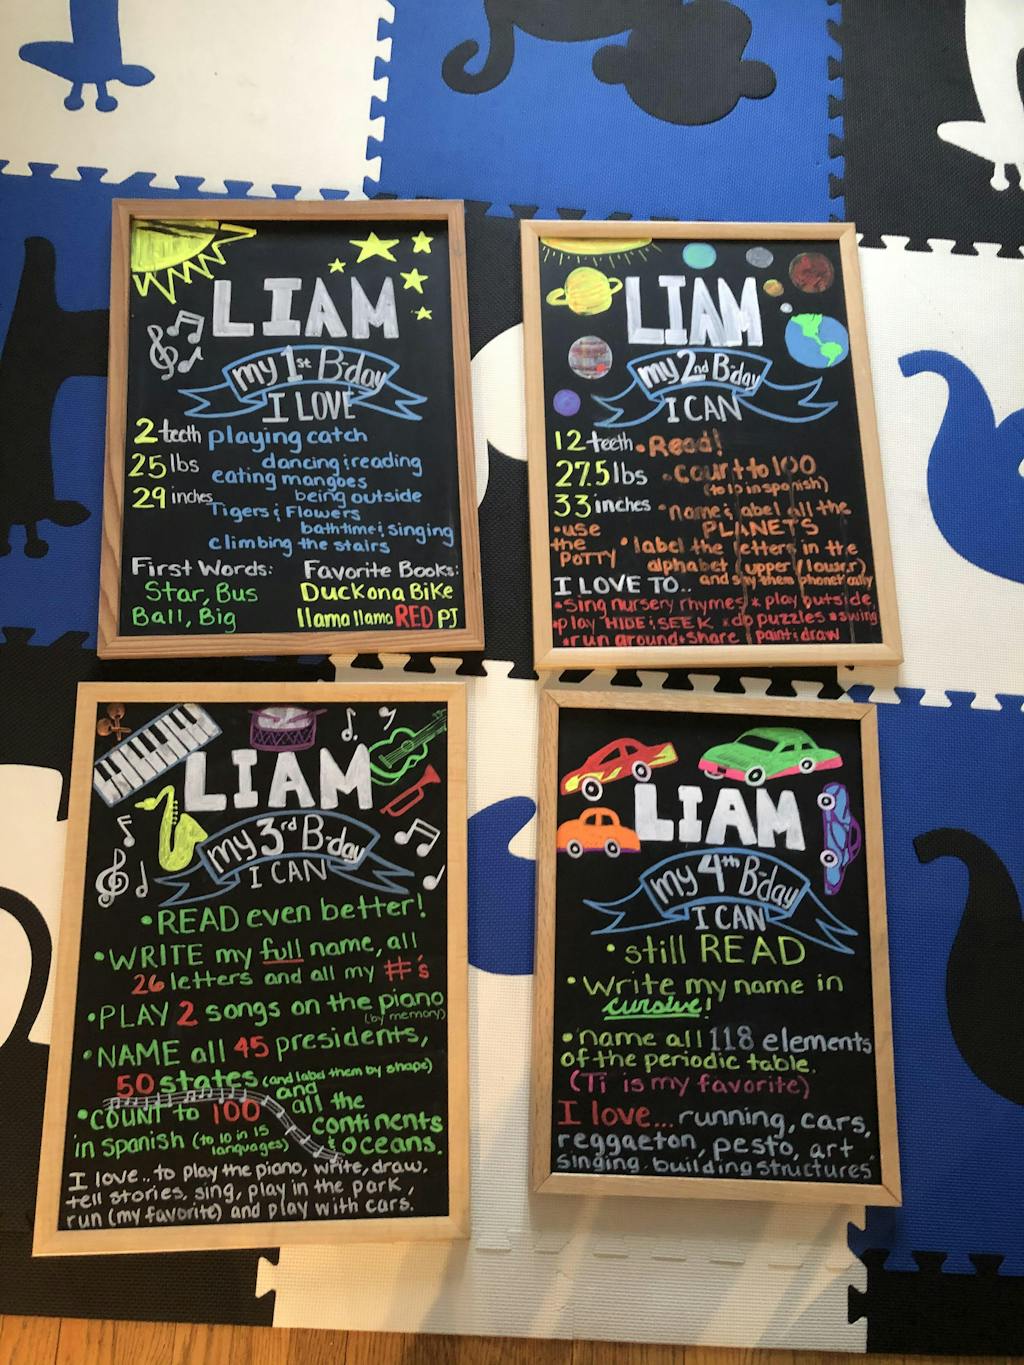 LIAM
my 1st B-day
I LOVE
2 teeth playing catch
25 lbs dancing & reading
eating mangoes
29 inches being outside
Tigers & Flowers
bathtime & singing
climbing the stairs
First Words: Favorite Books:
Star, Bus Duck on a Bike
Ball, Big llama llama RED PJ
LIAM
my 2nd B-day
I CAN
12 teeth • Read!
27.5 lbs • count to 100
(to 10 in spanish)
33 inches • name & label all the
PLANETS
• use the POTTY
• label the letters in the
alphabet (upper & lower)
and say them phonetically
I LOVE TO..
• sing nursery rhymes • play outside,
• play HIDE & SEEK • do puzzles • swing
• run around • share • paint & draw
LIAM
my 3rd B-day
I CAN
• READ even better!
• WRITE my full name, all
26 letters and all my #'s
• PLAY 2 songs on the piano
(by memory)
• NAME all 45 presidents,
50 states (and label them by shape)
and all the continents & oceans.
• COUNT to 100
in spanish (to 10 in 15 languages)
I love.. to play the piano, write, draw,
tell stories, sing, play in the park,
run (my favorite) and play with cars.
LIAM
my 4th B-day
I CAN
• still READ
• Write my name in
cursive!
• name all 118 elements
of the periodic table.
(Ti is my favorite)
I love... running, cars,
reggaeton, pesto, art
singing, building structures